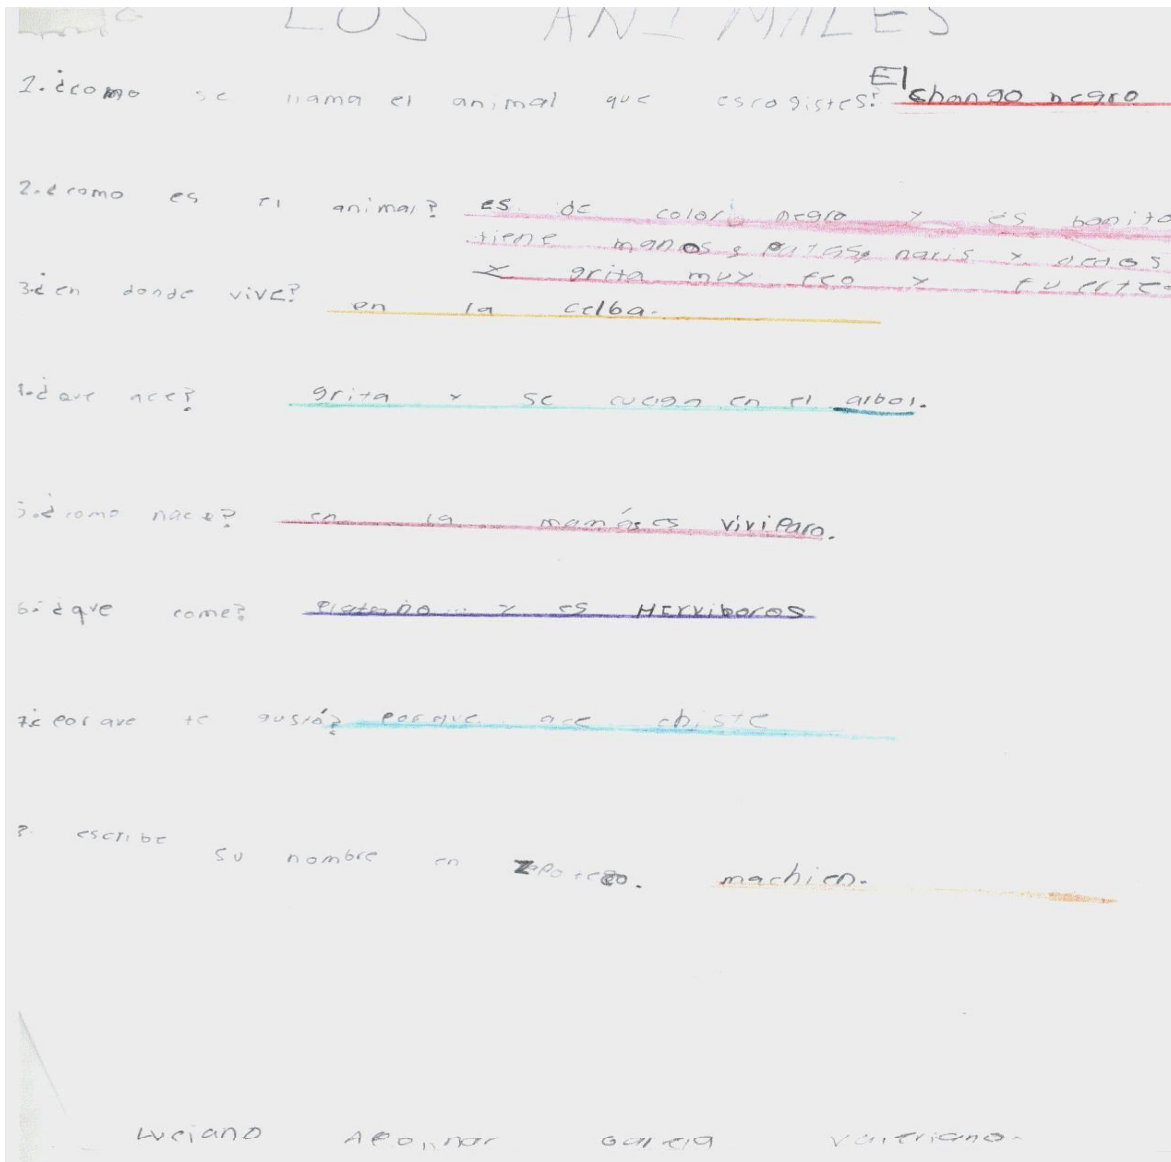 LOS ANIMALES
1. ¿como se llama el animal que escogistes? El chango negro
2. ¿como es el animal? es de color negro y es bonito
tiene manos, patas, naris y dedos
y grita muy feo y fuerte.
3. ¿en donde vive? en la celba.
4. ¿que ace? grita y se cuega en el arbol.
5. ¿como nace? en la mamá es viviparo.
6. ¿que come? platano y es HErviboros
7. ¿porque te gustó? porque ace chiste
? escribe su nombre en zapoteco. machien.
Luciano Garcia Valeriano.